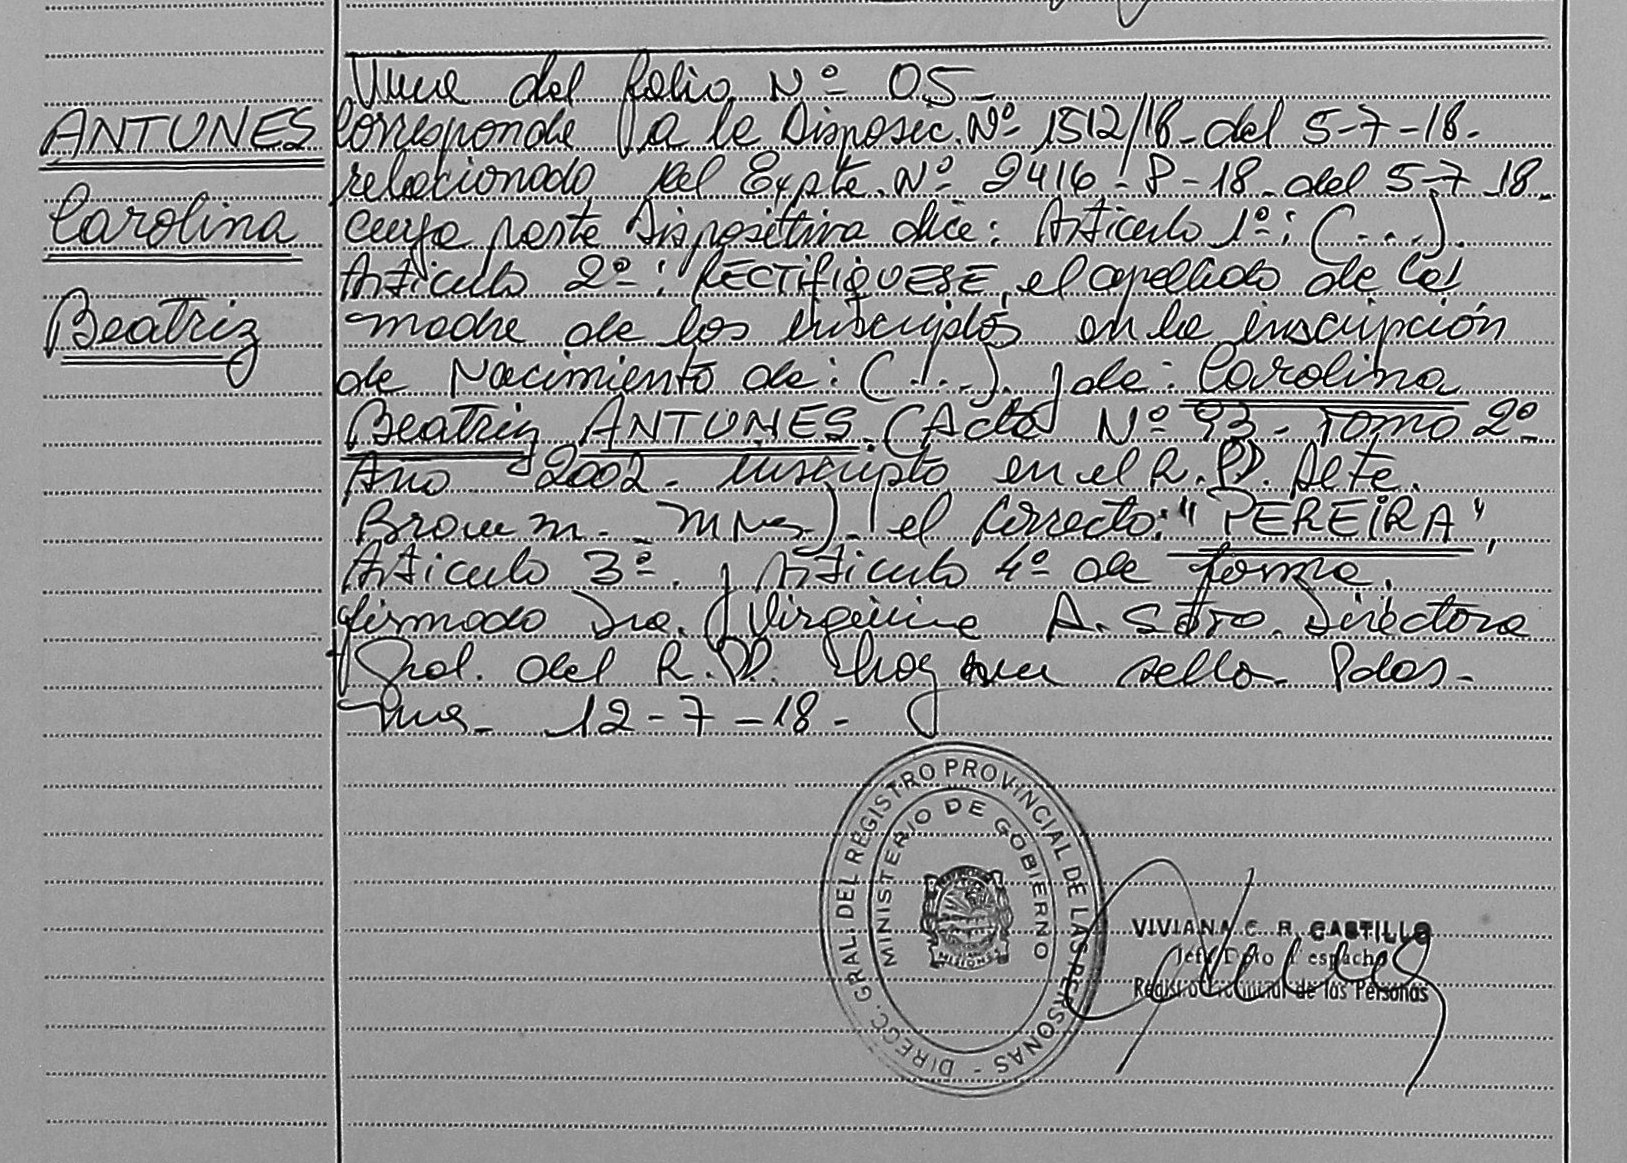 ANTUNES
Carolina
Beatriz
Viene del folio Nº 05-
Corresponde a la Disposic. Nº 1512/18- del 5-7-18-
relacionado al Expte. Nº 2416-P-18- del 5-7-18-
cuya parte Dispositiva dice: Artículo 1º: (...).
Artículo 2º: RECTIFIQUESE, el apellido de la
madre de los inscriptos en la inscripción
de Nacimiento de: (...). y de: Carolina
Beatriz ANTUNES. (Acta Nº 93- Tomo 2º
Año 2002- inscripto en el R.PP. Alte.
Brown - Mnes). el correcto: "PEREIRA",
Artículo 3º. y Artículo 4º de forma.
firmado Dra. Virginia A. Soto. Directora
Gral. del R.PP. hay un sello- Pdas-
Mnes- 12-7-18-
DIRECC. GRAL. DEL REGISTRO PROVINCIAL DE LAS PERSONAS -
MINISTERIO DE GOBIERNO
MISIONES
VIVIANA C. R. CASTILLO
Jefe Dpto Despacho
Registro Provincial de las Personas